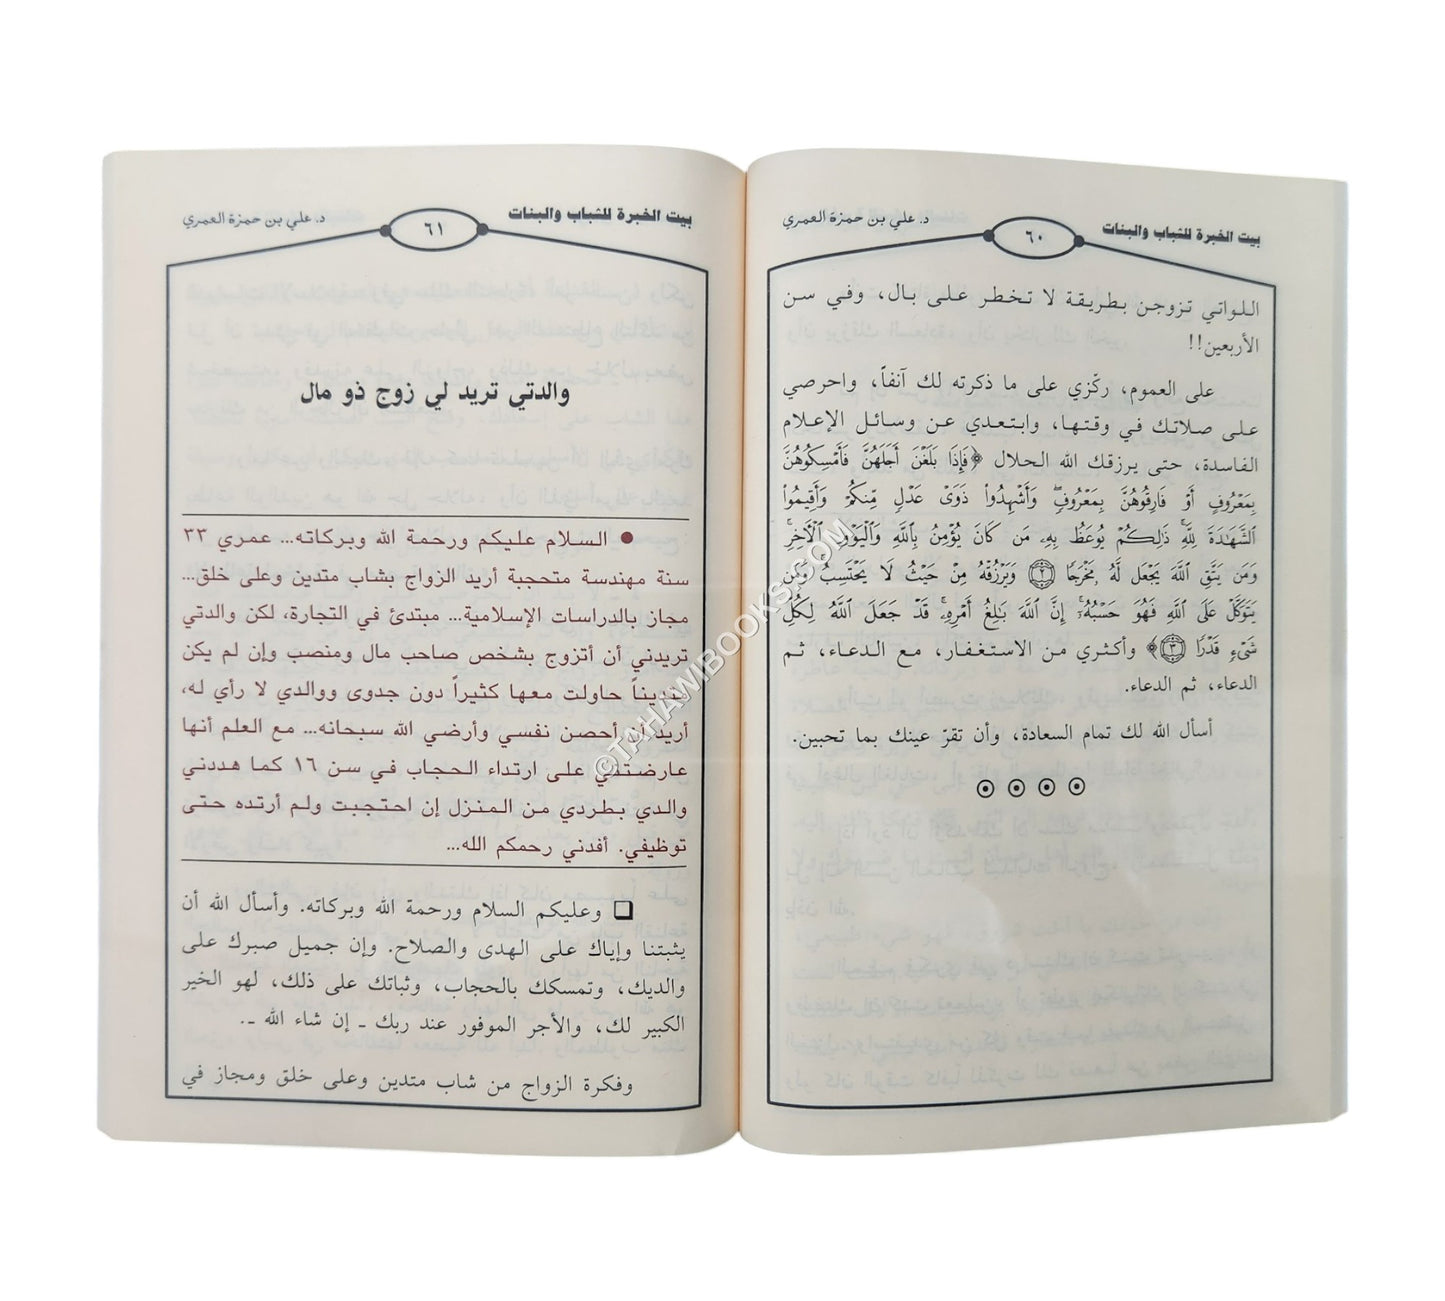 بيت الخبرة للشباب والبنات
٦٠
د. علي بن حمزة العمري
اللواتي تزوجن بطريقة لا تخطر على بال، وفي سن
الأربعين!!
على العموم، ركّزي على ما ذكرته لك آنفاً، واحرصي
على صلاتك في وقتها، وابتعدي عن وسائل الإعلام
الفاسدة، حتى يرزقك الله الحلال ﴿فَإِذَا بَلَغْنَ أَجَلَهُنَّ فَأَمْسِكُوهُنَّ
بِمَعْرُوفٍ أَوْ فَارِقُوهُنَّ بِمَعْرُوفٍ وَأَشْهِدُوا۟ ذَوَىْ عَدْلٍ مِّنكُمْ وَأَقِيمُوا۟
ٱلشَّهَٰدَةَ لِلَّهِ ۚ ذَٰلِكُمْ يُوعَظُ بِهِۦ مَن كَانَ يُؤْمِنُ بِٱللَّهِ وَٱلْيَوْمِ ٱلْءَاخِرِ ۚ
وَمَن يَتَّقِ ٱللَّهَ يَجْعَل لَّهُۥ مَخْرَجًا ٢ وَيَرْزُقْهُ مِنْ حَيْثُ لَا يَحْتَسِبُ ۚ وَمَن
يَتَوَكَّلْ عَلَى ٱللَّهِ فَهُوَ حَسْبُهُۥٓ ۚ إِنَّ ٱللَّهَ بَٰلِغُ أَمْرِهِۦ ۚ قَدْ جَعَلَ ٱللَّهُ لِكُلِّ
شَىْءٍ قَدْرًا ٣﴾ وأكثري من الاستغفار، مع الدعاء، ثم
الدعاء، ثم الدعاء.
أسأل الله لك تمام السعادة، وأن تقرّ عينك بما تحبين.
بيت الخبرة للشباب والبنات
٦١
د. علي بن حمزة العمري
والدتي تريد لي زوج ذو مال
● السلام عليكم ورحمة الله وبركاته... عمري ٣٣
سنة مهندسة متحجبة أريد الزواج بشاب متدين وعلى خلق...
مجاز بالدراسات الإسلامية... مبتدئ في التجارة، لكن والدتي
تريدني أن أتزوج بشخص صاحب مال ومنصب وإن لم يكن
متديناً حاولت معها كثيراً دون جدوى ووالدي لا رأي له،
أريد أن أحصن نفسي وأرضي الله سبحانه... مع العلم أنها
عارضتني على ارتداء الحجاب في سن ١٦ كما هددني
والدي بطردي من المنزل إن احتجبت ولم أرتده حتى
توظيفي. أفدني رحمكم الله...
❑ وعليكم السلام ورحمة الله وبركاته. وأسأل الله أن
يثبتنا وإياك على الهدى والصلاح. وإن جميل صبرك على
والديك، وتمسكك بالحجاب، وثباتك على ذلك، لهو الخير
الكبير لك، والأجر الموفور عند ربك ـ إن شاء الله ـ.
وفكرة الزواج من شاب متدين وعلى خلق ومجاز في
©TAHAWIBOOKS.COM